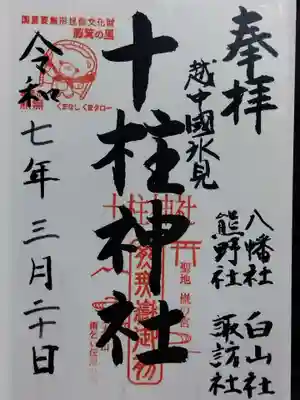 奉拝
八幡社 白山社
熊野社 諏訪社
越中國氷見
十柱神社
令和七年三月二十日
国重要無形民俗文化財
藤箕の里
くまなしくまタロー
十柱神社
聖地